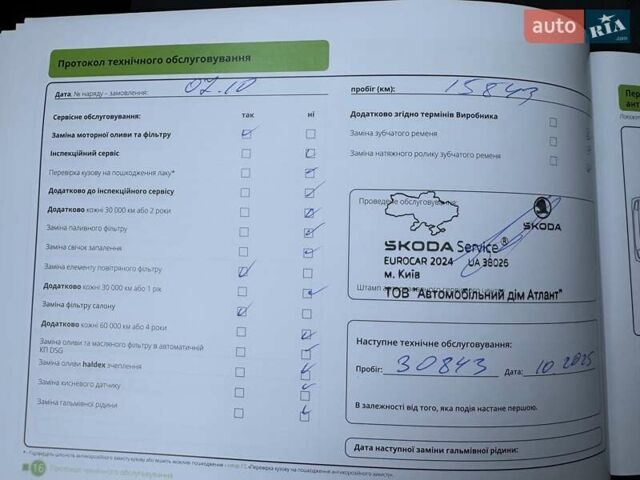 auto RIA.com
Протокол технічного обслуговування
Дата, № наряду – замовлення: 07.10
пробіг (км): 15843
Сервісне обслуговування: так ні
Заміна моторної оливи та фільтру
Інспекційний сервіс
Перевірка кузову на пошкодження лаку*
Додатково до інспекційного сервісу
Додатково кожні 30 000 км або 2 роки
Заміна паливного фільтру
Заміна свічок запалення
Заміна елементу повітряного фільтру
Додатково кожні 30 000 км або 1 рік
Заміна фільтру салону
Додатково кожні 60 000 км або 4 роки
Заміна оливи та масляного фільтру в автоматичній
КП DSG
Заміна оливи haldex зчеплення
Заміна кисневого датчику
Заміна гальмівної рідини
Додатково згідно термінів Виробника
Заміна зубчатого ременя
Заміна натяжного ролику зубчатого ременя
Проведене обслуговування:
SKODA Service®
SKODA
EUROCAR 2024 UA 38026
м. Київ
Штамп
ТОВ "Автомобільний дім Атлант"
Наступне технічне обслуговування:
Пробіг: 30843 Дата: 10.2025
В залежності від того, яка подія настане першою.
Дата наступної заміни гальмівної рідини:
16 Протокол технічного обслуговування